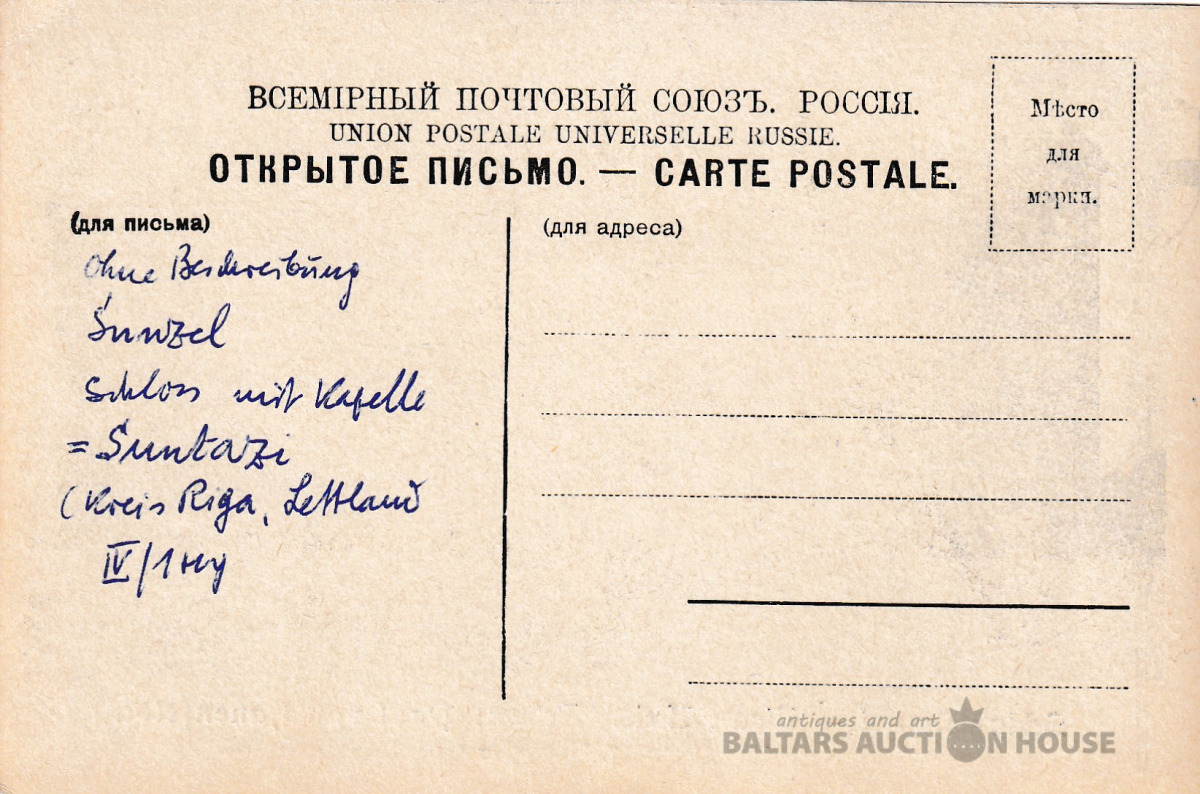 ВСЕМІРНЫЙ ПОЧТОВЫЙ СОЮЗЪ. РОССІЯ.
UNION POSTALE UNIVERSELLE RUSSIE.
ОТКРЫТОЕ ПИСЬМО. — CARTE POSTALE.
Мѣсто
для
марки.
(для письма)
ohne Beschreibung
Sunzel
Schloss mit Kapelle
= Suntazi
(Kreis Riga, Lettland
IV/1
(для адреса)
antiques and art
BALTARS AUCTION HOUSE